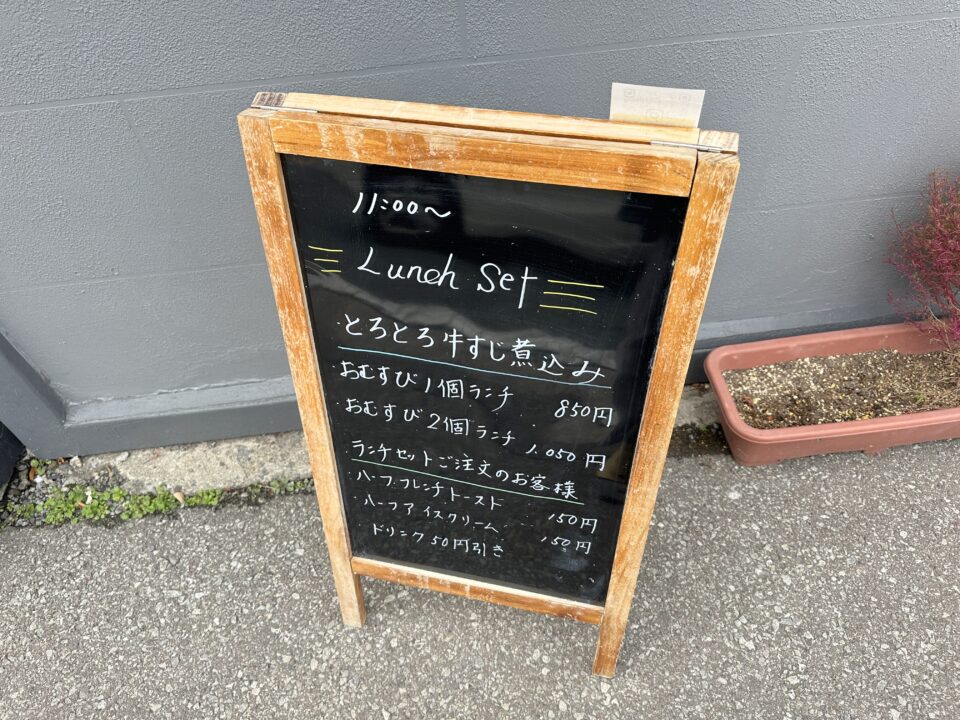 11:00～
Lunch Set
とろとろ牛すじ煮込み
・おむすび1個ランチ 850円
・おむすび2個ランチ 1.050円
ランチセットご注文のお客様
・ハーフフレンチトースト 150円
・ハーフアイスクリーム 150円
ドリンク50円引き